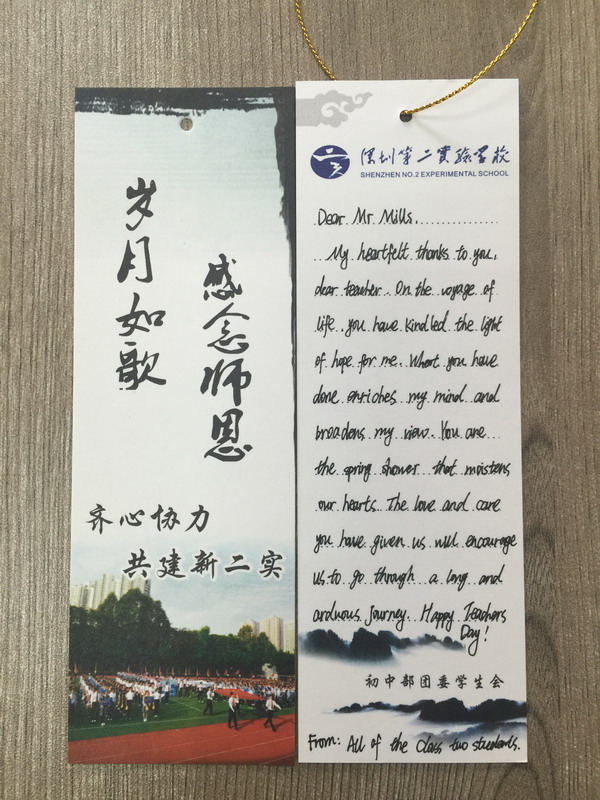 岁月如歌
感念师恩
齐心协力
共建新二实
深圳第二实验学校
SHENZHEN NO.2 EXPERIMENTAL SCHOOL
Dear Mr. Mills,
My heartfelt thanks to you,
dear teacher. On the voyage of
life, you have kindled the light
of hope for me. What you have
done enriches my mind and
broadens my view. You are
the spring shower that moistens
our hearts. The love and care
you have given us will encourage
us to go through a long and
arduous journey. Happy Teachers
Day!
初中部团委学生会
From: All of the class two students.